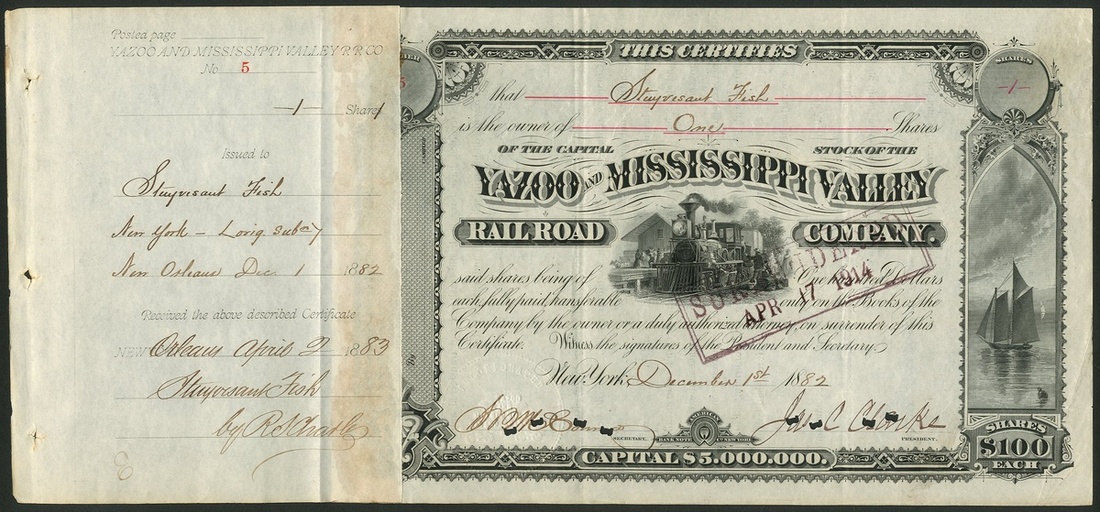 Posted page
YAZOO AND MISSISSIPPI VALLEY R R CO
No 5
-1- Share
Issued to
Stuyvesant Fish
New York -
New Orleans Dec 1 1882
Received the above described Certificate
NEW Orleans April 2 1883
Stuyvesant Fish
by
THIS CERTIFIES
5
SHARES
-1-
that Stuyvesant Fish
is the owner of One Shares
OF THE CAPITAL STOCK OF THE
YAZOO AND MISSISSIPPI VALLEY
RAIL ROAD COMPANY.
said shares being of One hundred Dollars
each, fully paid, transferable only on the Books of the
Company by the owner or a duly authorized Attorney, on surrender of this
Certificate. Witness the signatures of the President and Secretary.
SURRENDERED
APR 17 1914
New York, December 1st 1882
SECRETARY.
AMERICAN
BANK NOTE CO NEW YORK
Jas C Clarke
PRESIDENT.
CAPITAL $5.000.000.
SHARES
$100
EACH